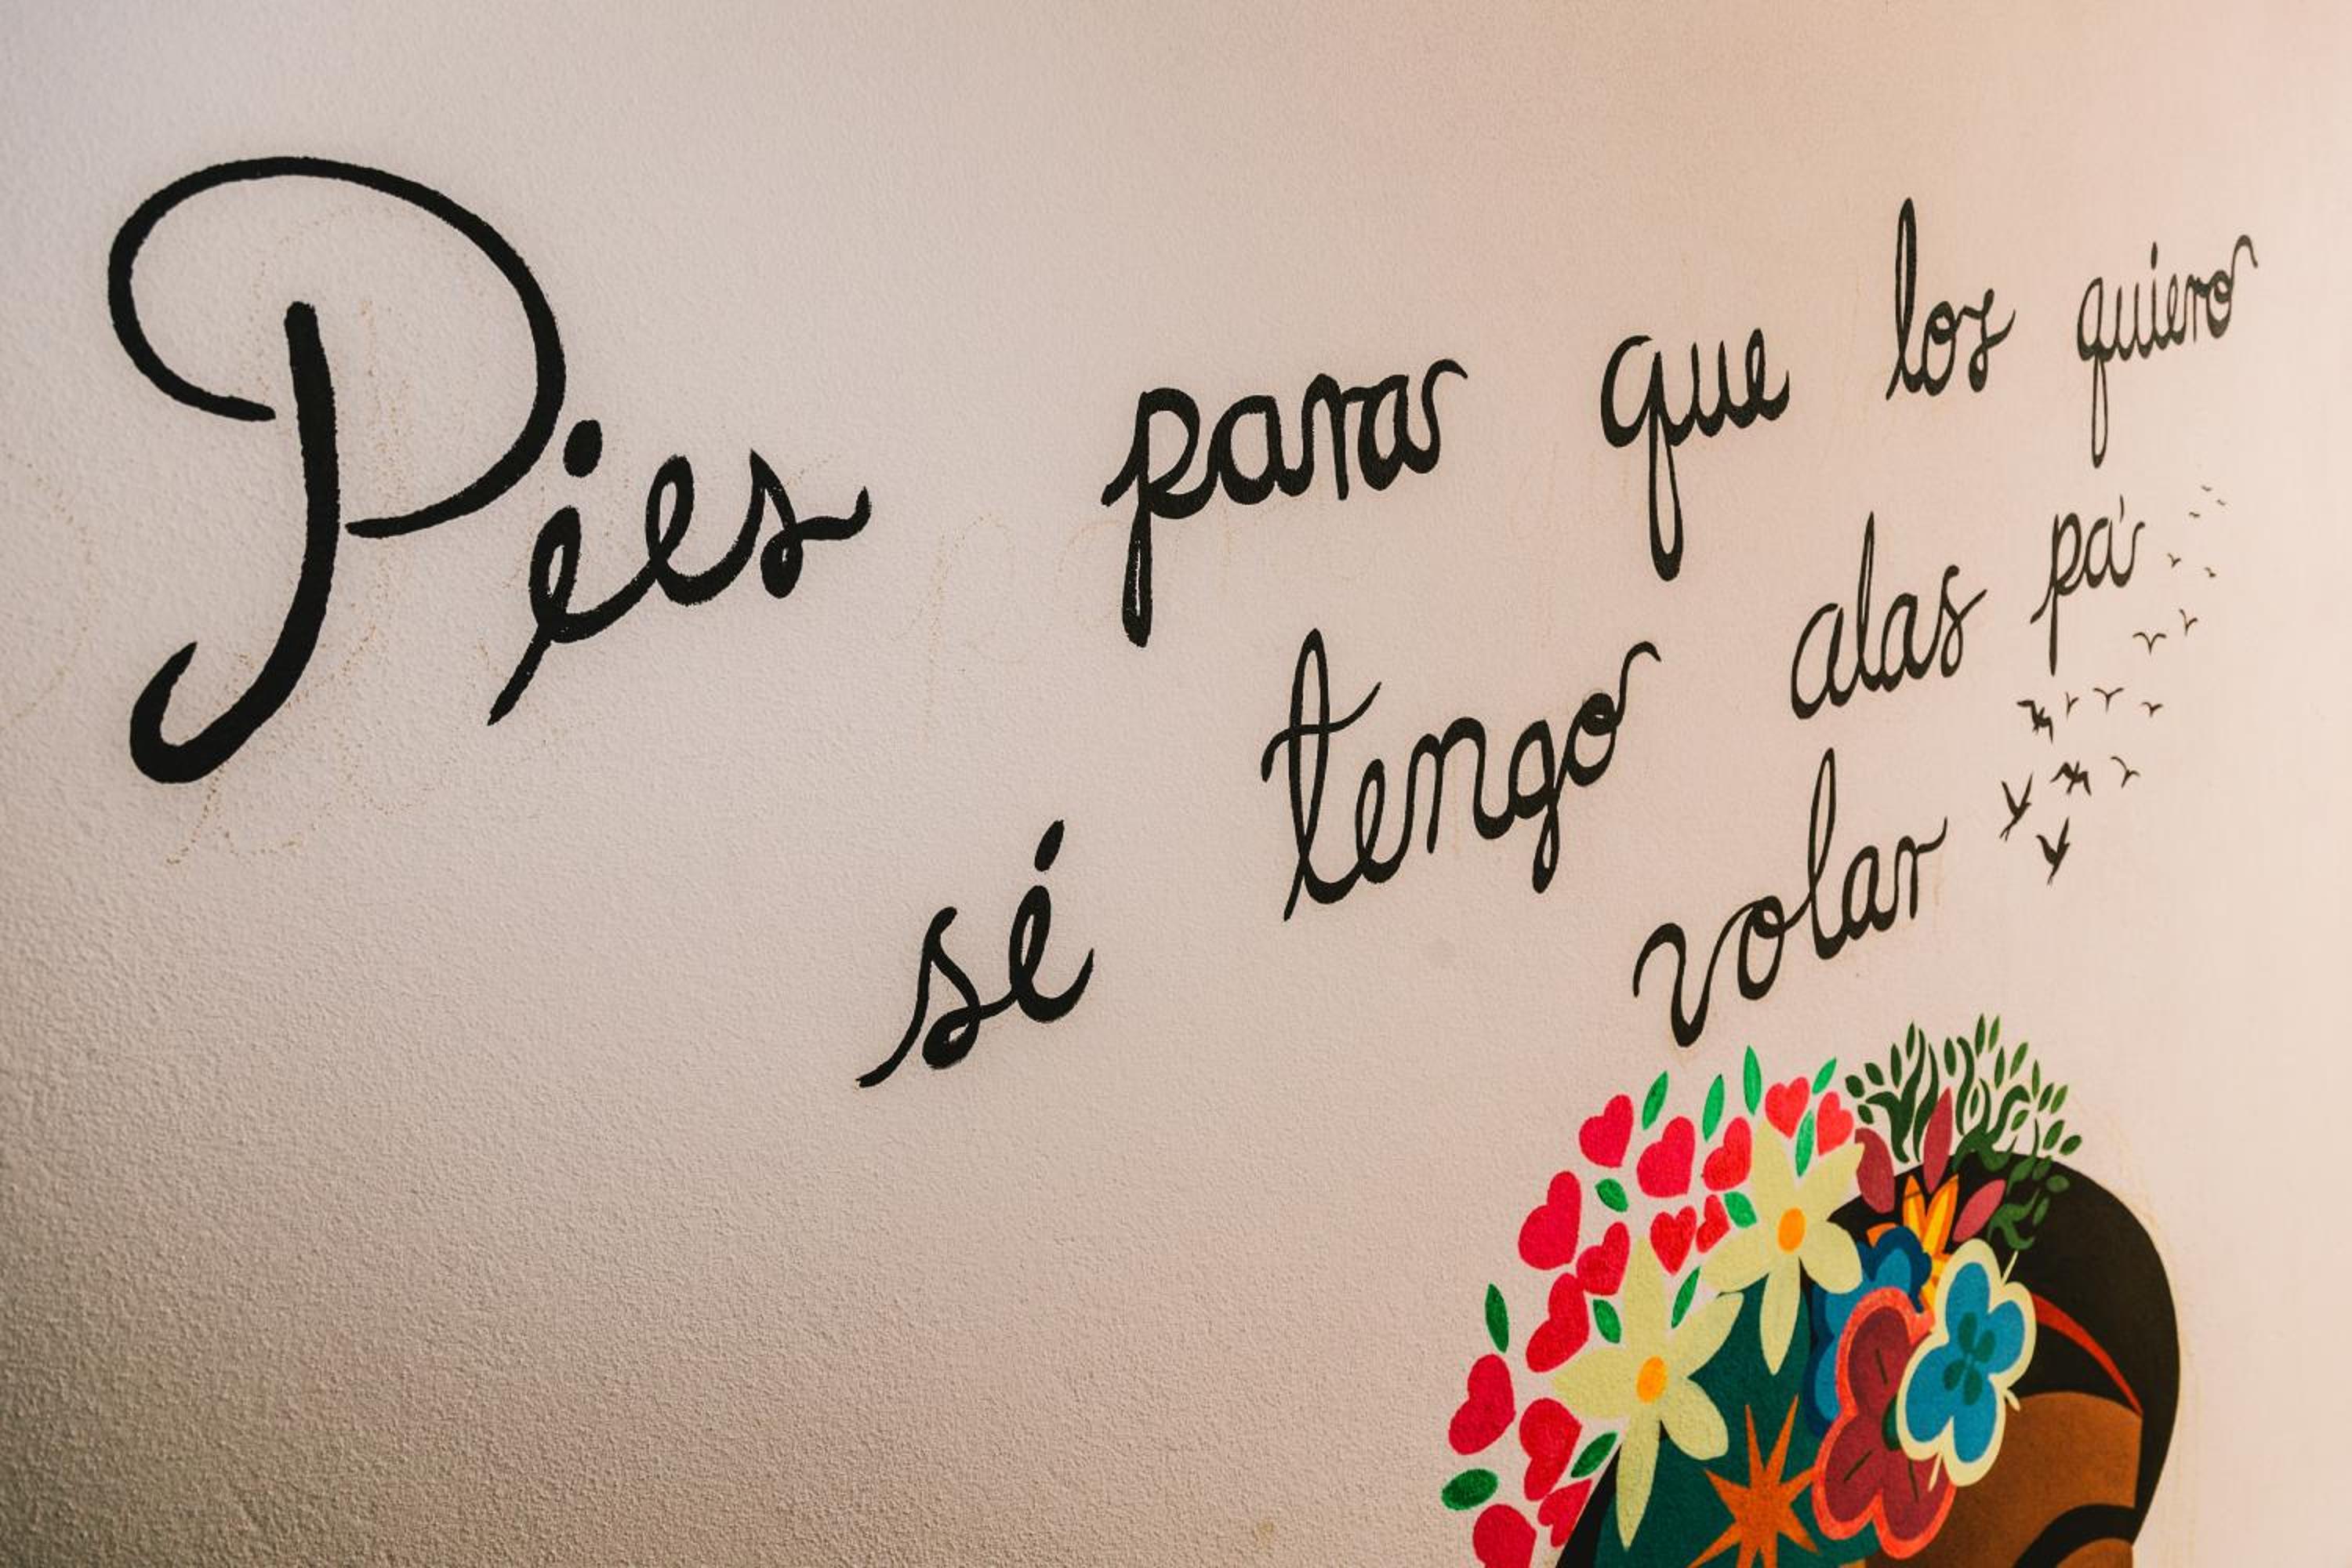 Pies para que los quiero
sé tengo alas pa'
volar